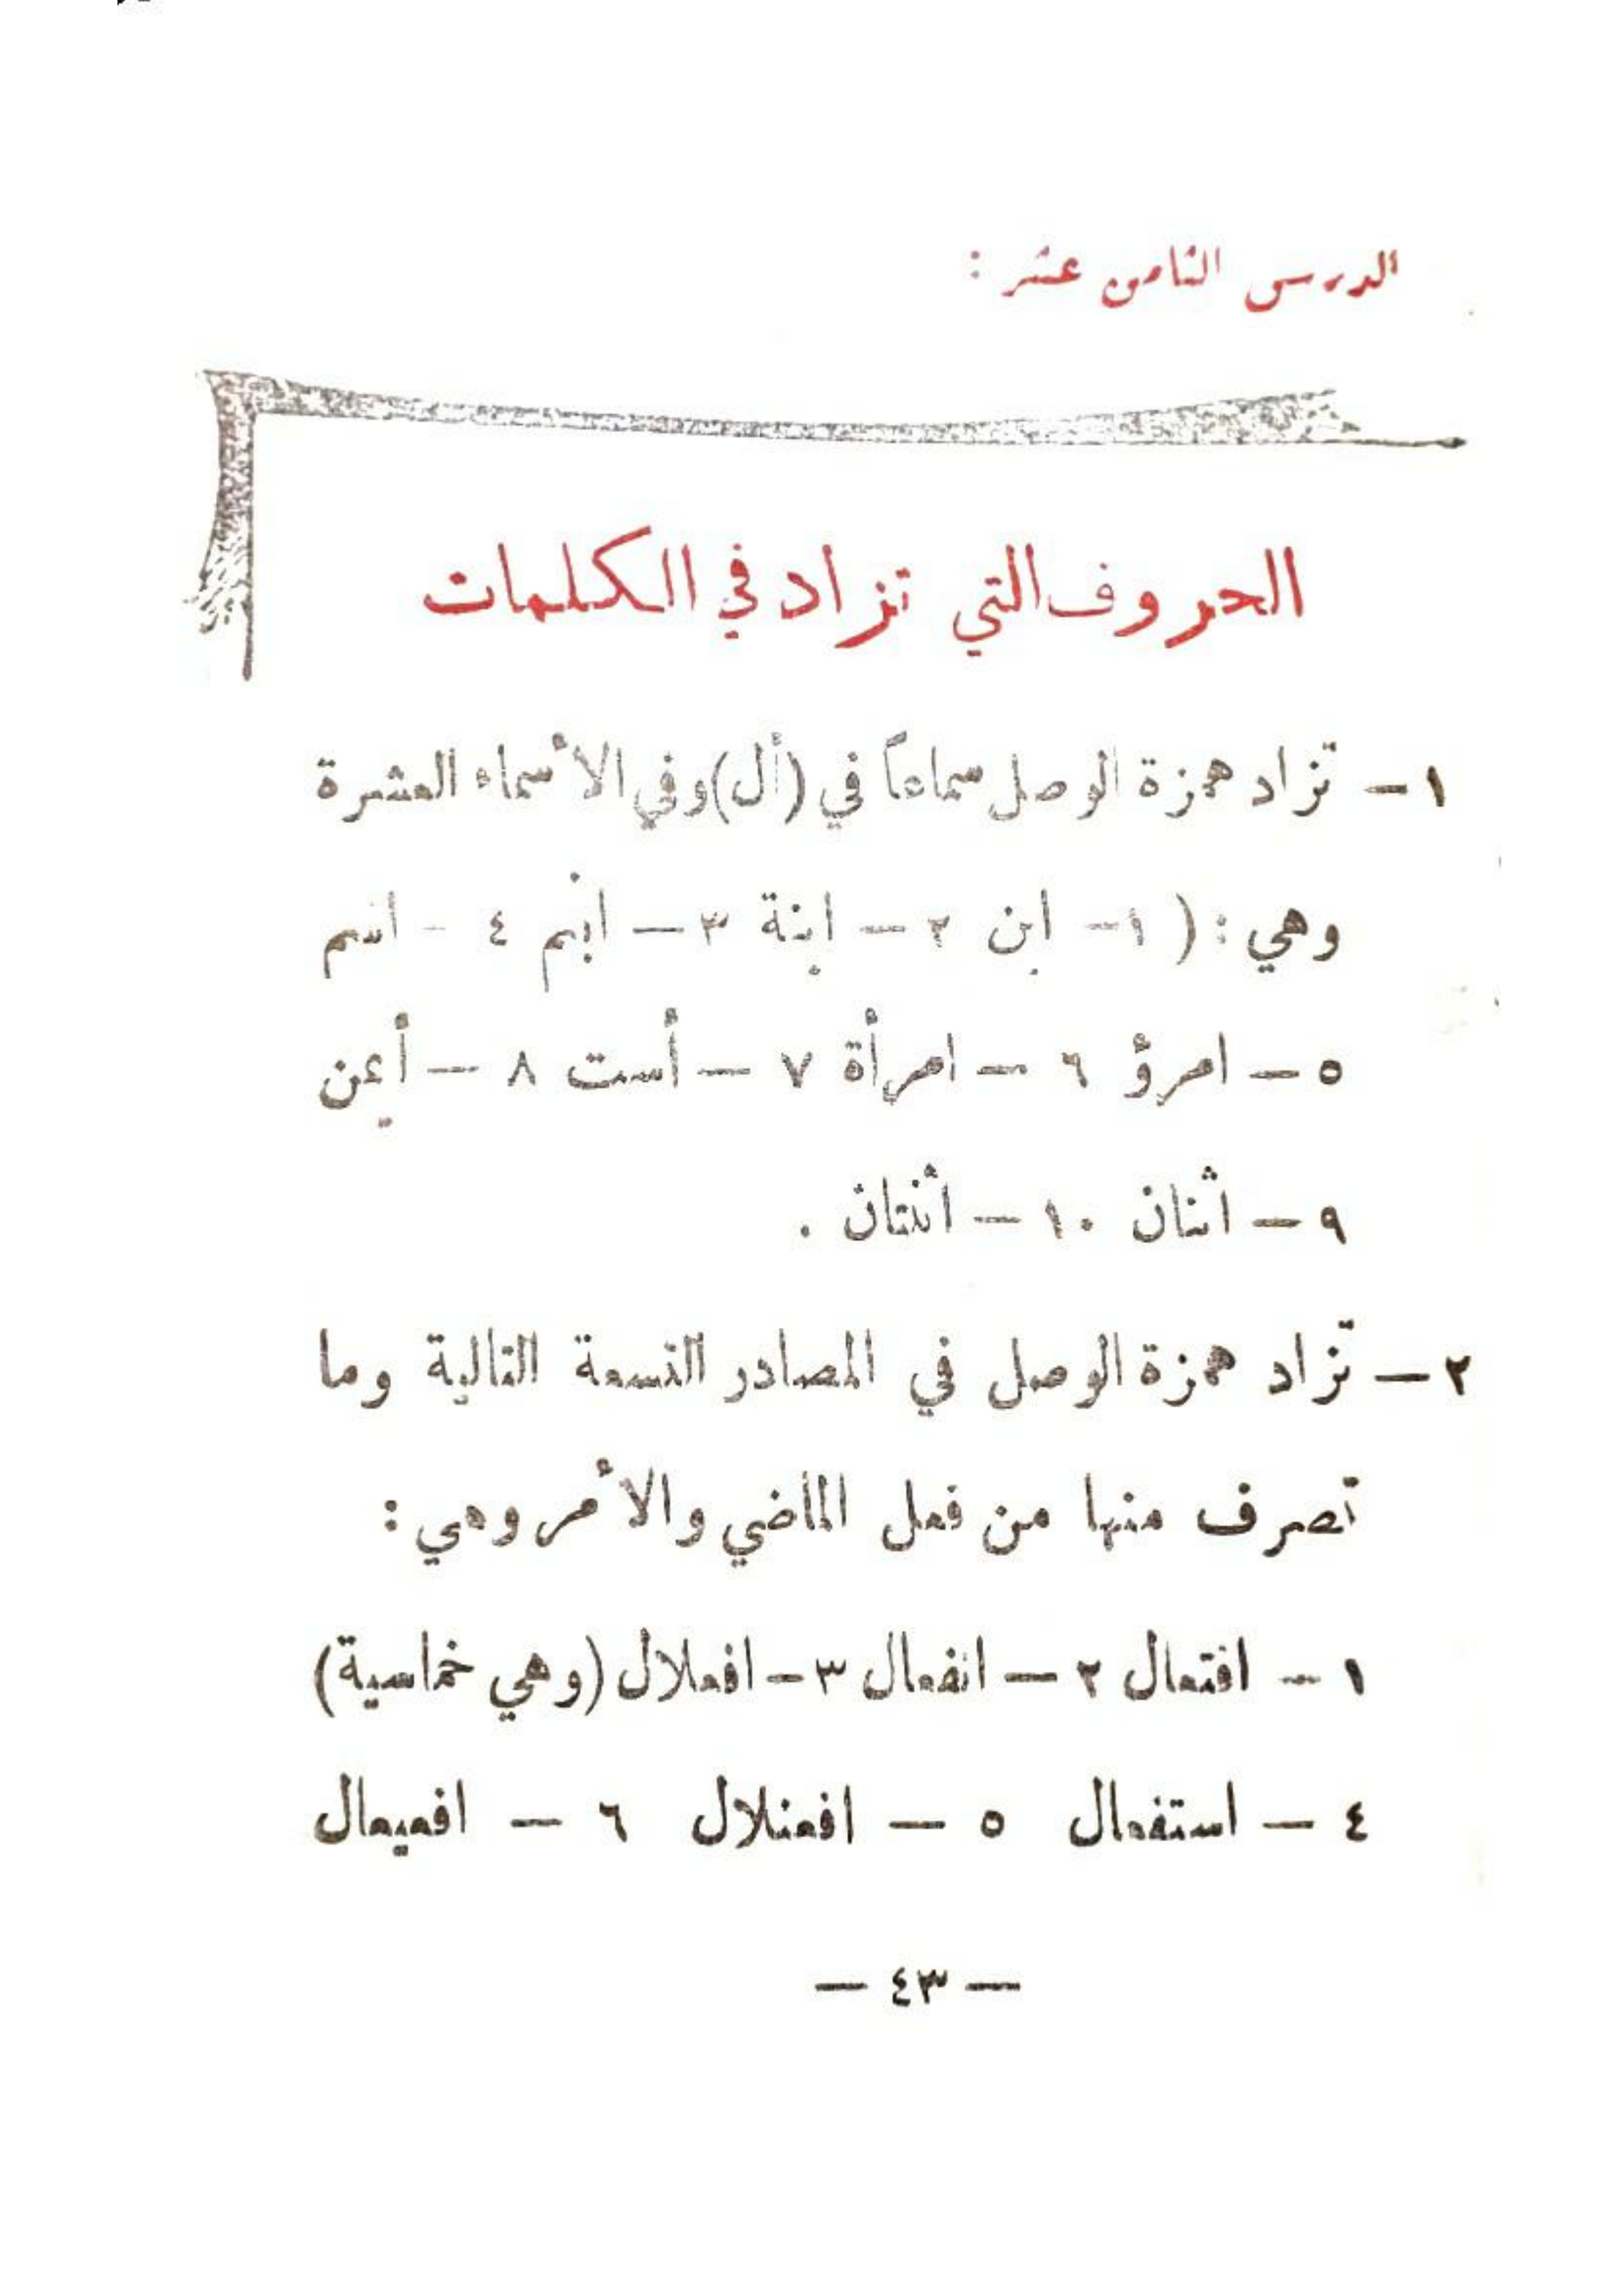 الدرس الثامن عشر :
الحروف التي تزاد في الكلمات
١ – تزاد همزة الوصل سماعاً في (أل) وفي الأسماء العشرة
وهي : ( ١ – ابن ٢ – ابنة ٣ – ابنم ٤ – اسم
٥ – امرؤ ٦ – امرأة ٧ – أست ٨ – أيمن
٩ – اثنان ١٠ – أثنتان .
٢ – تزاد همزة الوصل في المصادر التسعة التالية وما
تصرف منها من فعل الماضي والأمر وهي :
١ – افتعال ٢ – انفعال ٣ – افعلال (وهي خماسية)
٤ – استفعال ٥ – افعنلال ٦ – افعيعال
— ٤٣ —